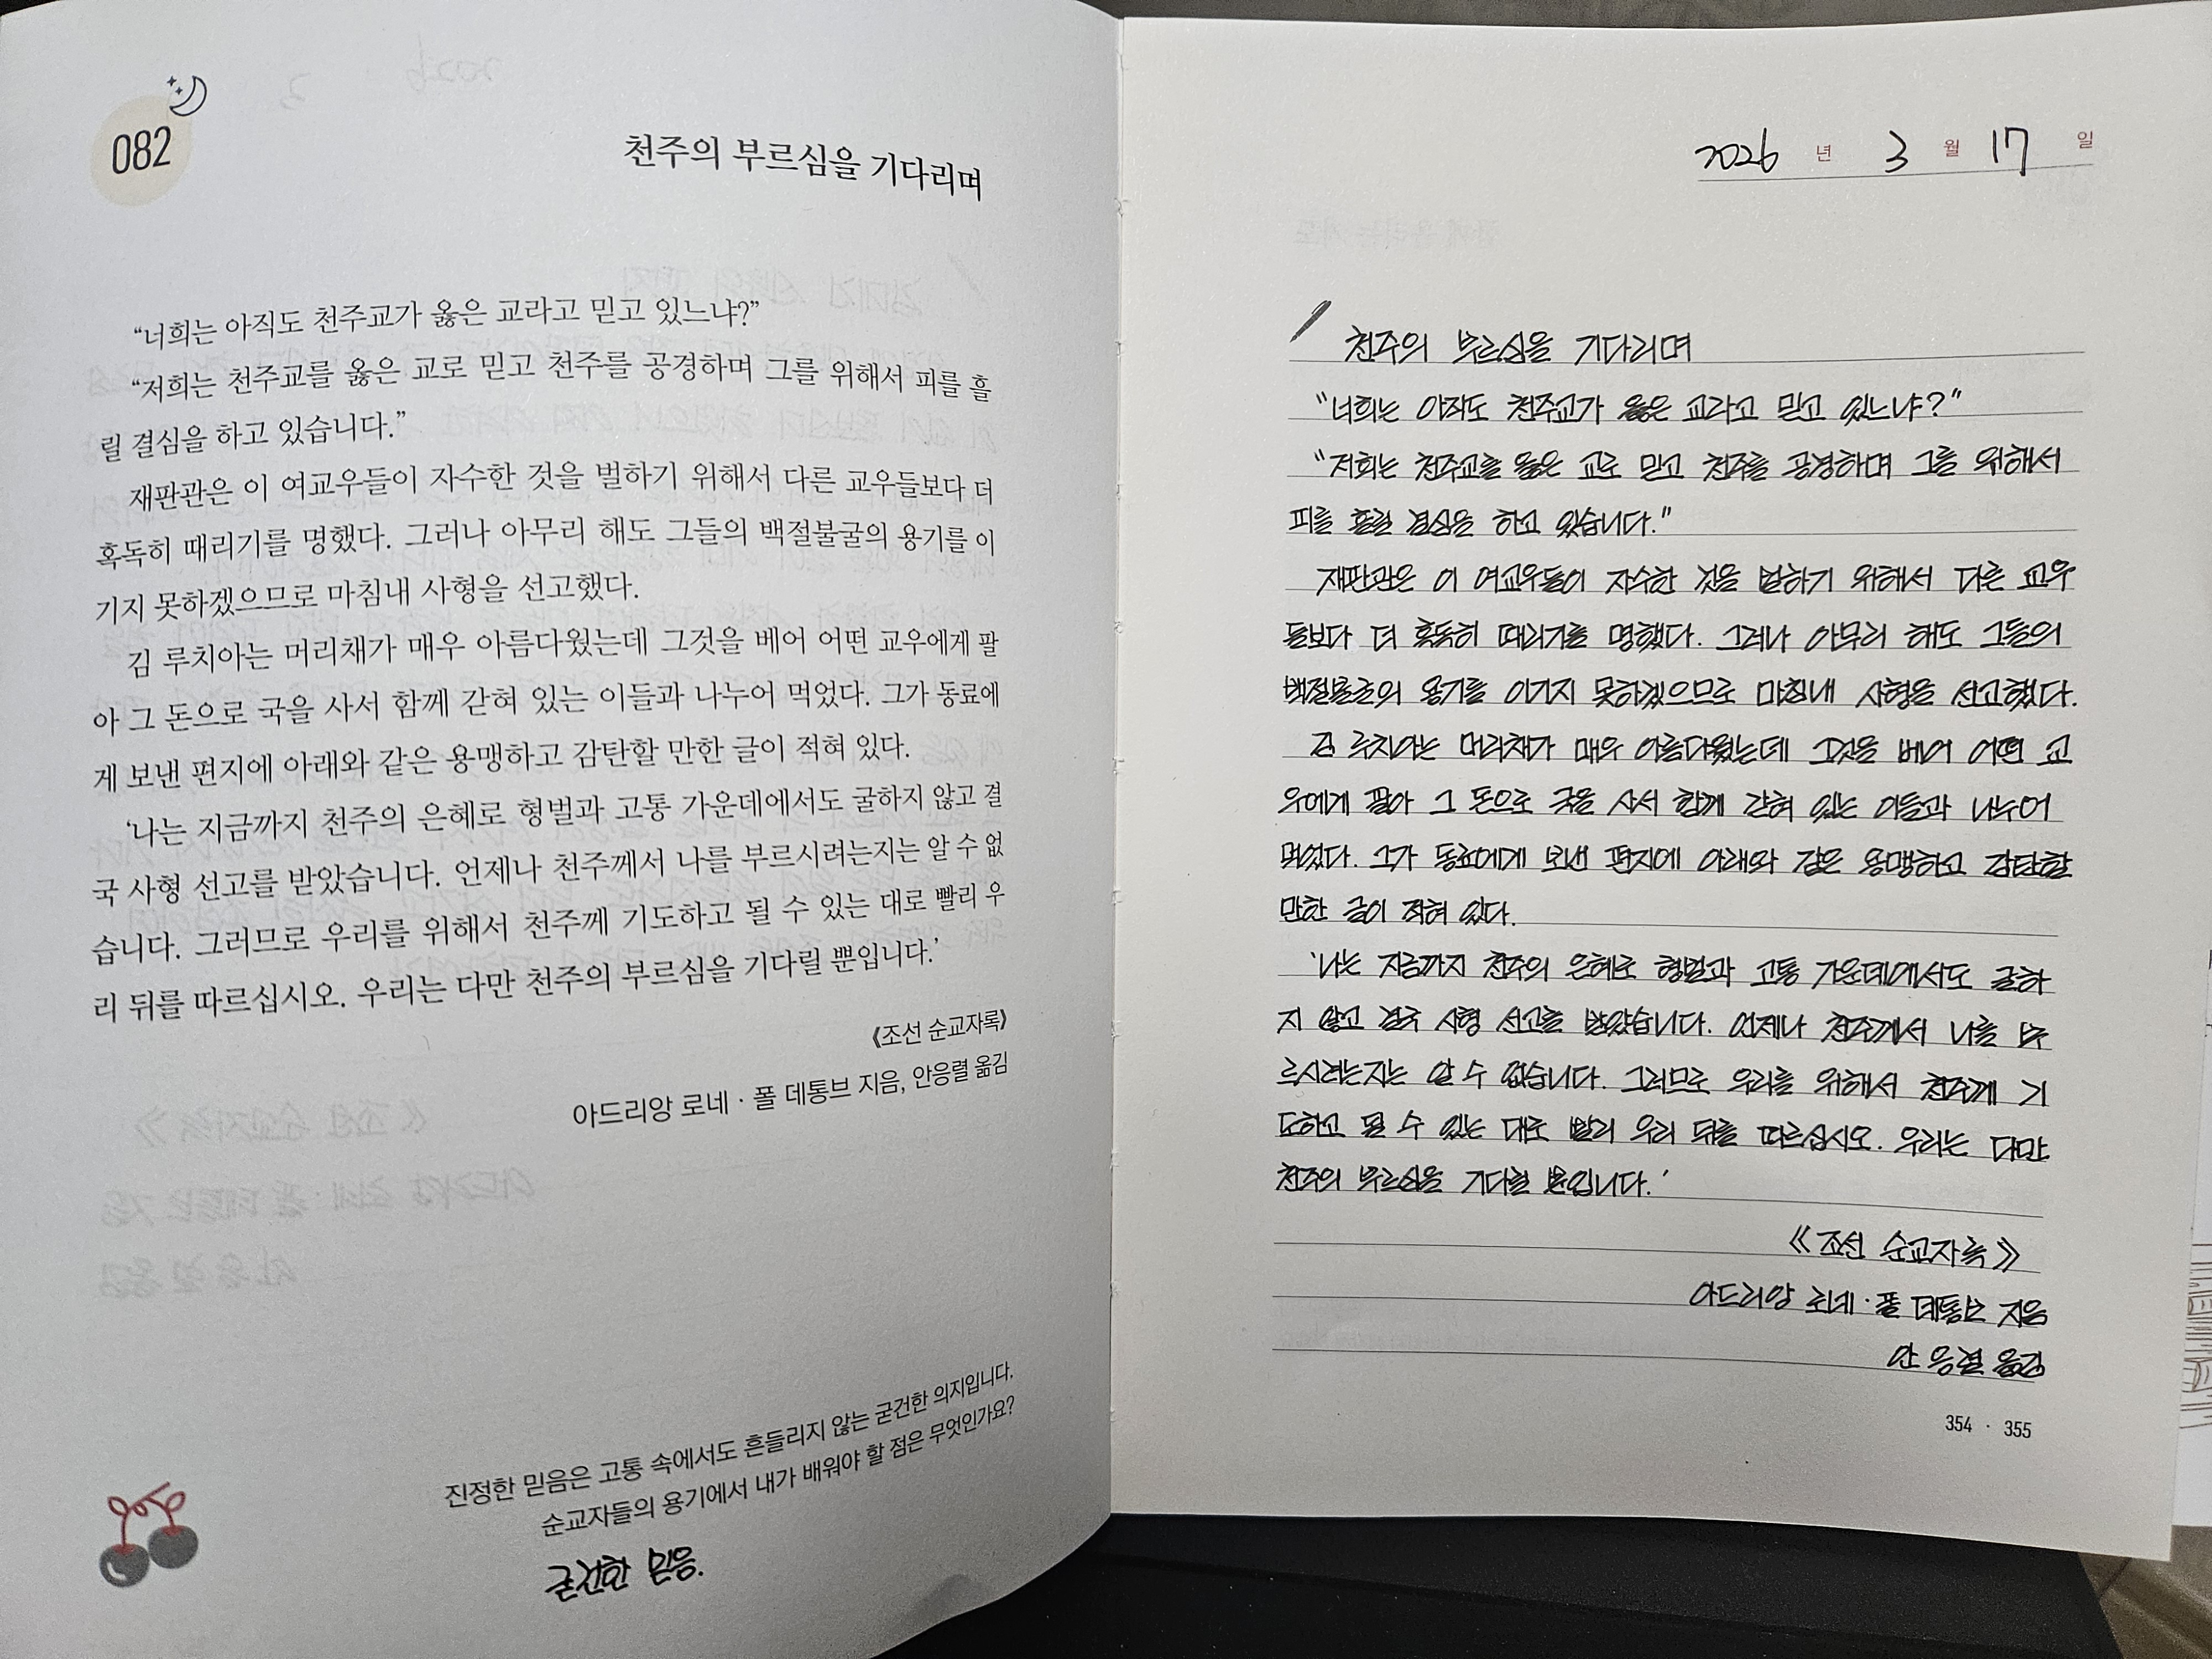 082
천주의 부르심을 기다리며
“너희는 아직도 천주교가 옳은 교라고 믿고 있느냐?”
“저희는 천주교를 옳은 교로 믿고 천주를 공경하며 그를 위해서 피를 흘
릴 결심을 하고 있습니다.”
재판관은 이 여교우들이 자수한 것을 벌하기 위해서 다른 교우들보다 더
혹독히 때리기를 명했다. 그러나 아무리 해도 그들의 백절불굴의 용기를 이
기지 못하겠으므로 마침내 사형을 선고했다.
김 루치아는 머리채가 매우 아름다웠는데 그것을 베어 어떤 교우에게 팔
아 그 돈으로 국을 사서 함께 갇혀 있는 이들과 나누어 먹었다. 그가 동료에
게 보낸 편지에 아래와 같은 용맹하고 감탄할 만한 글이 적혀 있다.
‘나는 지금까지 천주의 은혜로 형벌과 고통 가운데에서도 굴하지 않고 결
국 사형 선고를 받았습니다. 언제나 천주께서 나를 부르시려는지는 알 수 없
습니다. 그러므로 우리를 위해서 천주께 기도하고 될 수 있는 대로 빨리 우
리 뒤를 따르십시오. 우리는 다만 천주의 부르심을 기다릴 뿐입니다.’
《조선 순교자록》
아드리앙 로네 · 폴 데통브 지음, 안응렬 옮김
진정한 믿음은 고통 속에서도 흔들리지 않는 굳건한 의지입니다.
순교자들의 용기에서 내가 배워야 할 점은 무엇인가요?
굳건한 믿음.
2026 년 3 월 17 일
천주의 부르심을 기다리며
"너희는 아직도 천주교가 옳은 교라고 믿고 있느냐?"
"저희는 천주교를 옳은 교로 믿고 천주를 공경하며 그를 위해서
피를 흘릴 결심을 하고 있습니다."
재판관은 이 여교우들이 자수한 것을 벌하기 위해서 다른 교우
들보다 더 혹독히 때리기를 명했다. 그러나 아무리 해도 그들의
백절불굴의 용기를 이기지 못하겠으므로 마침내 사형을 선고했다.
김 루치아는 머리채가 매우 아름다웠는데 그것을 베어 어떤 교
우에게 팔아 그 돈으로 국을 사서 함께 갇혀 있는 이들과 나누어
먹었다. 그가 동료에게 보낸 편지에 아래와 같은 용맹하고 감탄할
만한 글이 적혀 있다.
'나는 지금까지 천주의 은혜로 형벌과 고통 가운데에서도 굴하
지 않고 결국 사형 선고를 받았습니다. 언제나 천주께서 나를 부
르시려는지는 알 수 없습니다. 그러므로 우리를 위해서 천주께 기
도하고 될 수 있는 대로 빨리 우리 뒤를 따르십시오. 우리는 다만
천주의 부르심을 기다릴 뿐입니다.'
《조선 순교자록》
아드리앙 로네 · 폴 데통브 지음
안응렬 옮김
354 · 355